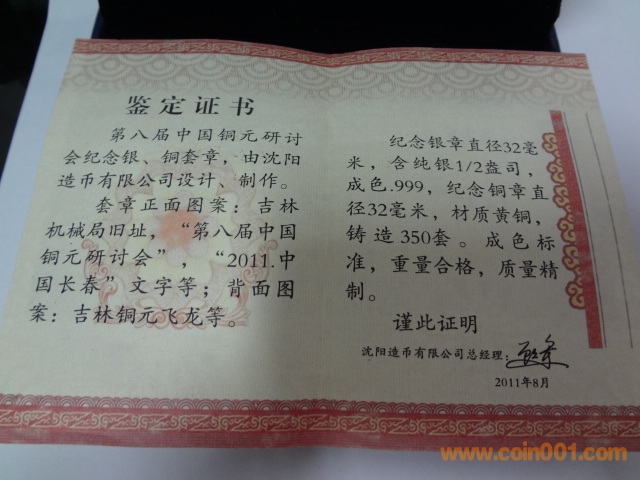 鉴定证书
第八届中国铜元研讨
会纪念银、铜套章，由沈阳
造币有限公司设计、制作。
套章正面图案：吉林
机械局旧址，“第八届中国
铜元研讨会”，“2011.中
国长春”文字等；背面图
案：吉林铜元飞龙等。
纪念银章直径32毫
米，含纯银1/2盎司，
成色.999，纪念铜章直
径32毫米，材质黄铜，
铸造350套。成色标
准，重量合格，质量精
制。
谨此证明
沈阳造币有限公司总经理：
2011年8月
www.coin001.com